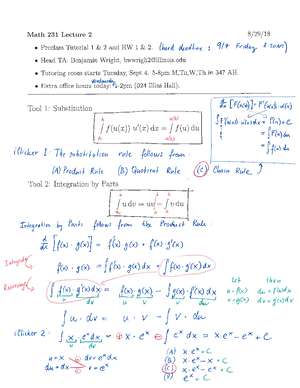 Math 231 Lecture 2 8/29/18
• Preclass Tutorial 1 & 2 and HW 1 & 2. (hard deadline : 9/4 Friday 8:00AM)
• Head TA: Benjamin Wright, bwwrigh2@illinois.edu
• Tutoring room starts Tuesday, Sept 4. 5-8pm M,Tu,W,Th in 347 AH.
Wednesday
• Extra office hours today: 1-2pm (024 Illini Hall).
d/dx [F(u(x))] = F'(u(x))·u'(x)
∫ f(u(x))·u'(x) dx = F(u) + C
= ∫ f(u) du
Tool 1: Substitution
∫ f(u(x)) u'(x) dx = ∫ f(u) du
iClicker 1: The substitution rule follows from:
(A) Product Rule (B) Quotient Rule (C) Chain Rule
Tool 2: Integration by Parts
∫ u dv = uv − ∫ v du
Integration by Parts follows from the Product Rule:
d/dx [f(x)·g(x)] = f'(x)·g(x) + f(x)·g'(x)
Integrate
f(x)·g(x) = ∫ f'(x)·g(x) dx + ∫ f(x)·g'(x) dx
Rearrange
∫ f(x)·g'(x) dx = f(x)·g(x) − ∫ g(x)·f'(x) dx
u dv u v v du
let then
u = f(x) du = f'(x) dx
v = g(x) dv = g'(x) dx
∫ u·dv = u·v − ∫ v·du
iClicker 2: ∫ x·e^x dx = x·e^x − ∫ e^x dx = x·e^x − e^x + C
u dv
u = x dv = e^x dx
du = dx v = e^x
(A) x·e^x + C
(B) x·e^x − x + C
(C) x·e^x − e^x + C
(D) e^x + C